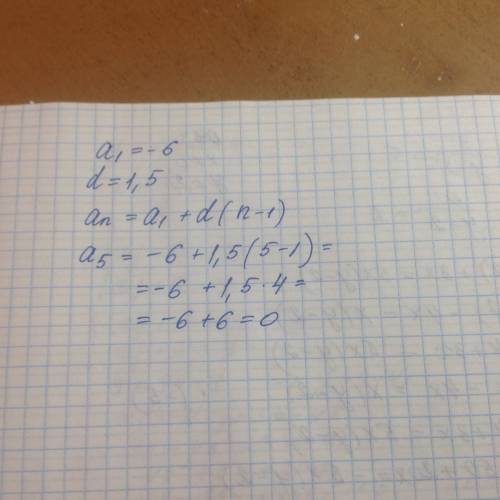 a₁ = -6
d = 1,5
aₙ = a₁ + d(n-1)
a₅ = -6 + 1,5(5-1) =
= -6 + 1,5 · 4 =
= -6 + 6 = 0